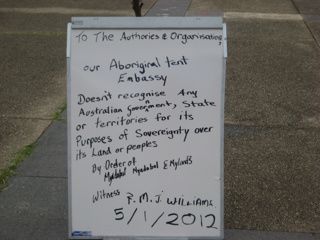 To The Authories & Organisations,
our Aboriginal tent
Embassy
Doesn't recognise Any
Australian Government, State
or territories for its
Purposes of Sovereignty over
its Land or peoples
By Order of
Witness P. M. J. WILLIAMS
5/1/2012